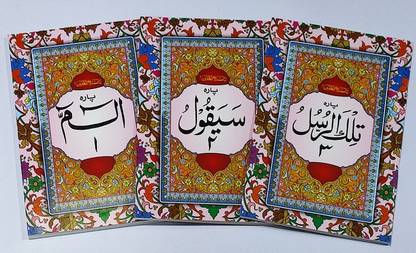 پاره
الٓمٓ
۱
پاره
سَيَقُولُ
۲
پاره
تِلْكَ الرُّسُلُ
۳